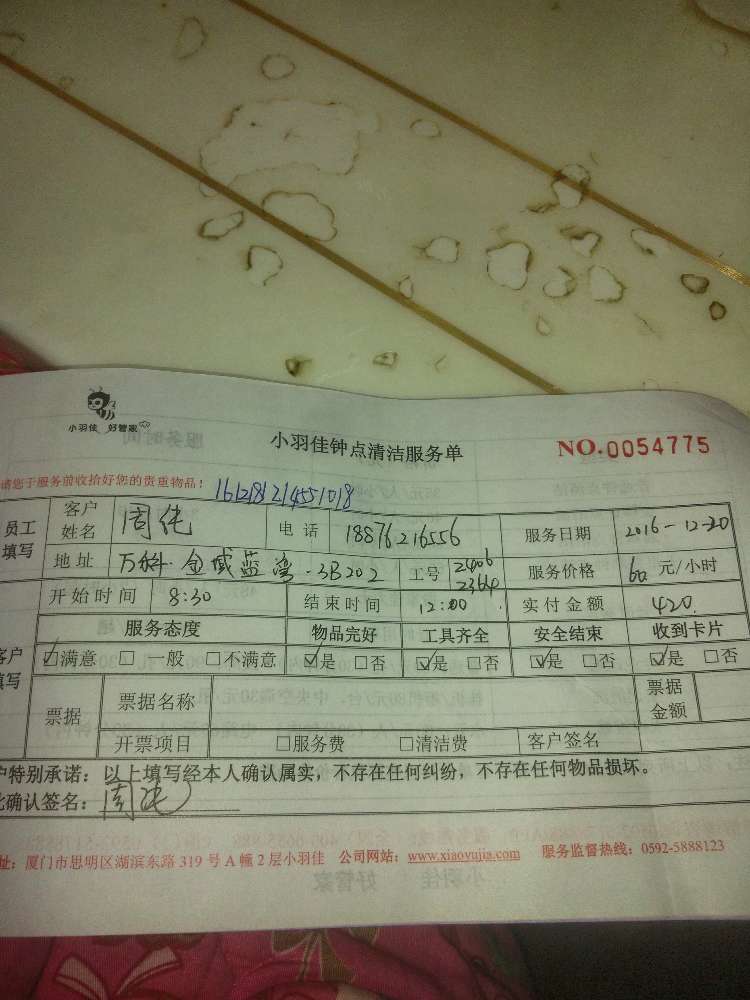 小羽佳 好管家
小羽佳钟点清洁服务单
NO.0054775
请您于服务前收拾好您的贵重物品！
1612181214551018
员工填写 客户姓名 周纯 电话 18876216556 服务日期 2016-12-20
地址 万科·金域蓝湾·3B202 工号 2406 2364 服务价格 60 元/小时
开始时间 8:30 结束时间 12:00 实付金额 420
服务态度 物品完好 工具齐全 安全结束 收到卡片
客户填写 ☑满意 □一般 □不满意 ☑是 □否 ☑是 □否 ☑是 □否 ☑是 □否
票据 票据名称 票据金额
开票项目 □服务费 □清洁费 客户签名
户特别承诺：以上填写经本人确认属实，不存在任何纠纷，不存在任何物品损坏。
此确认签名：周纯
址：厦门市思明区湖滨东路 319 号 A 幢 2 层小羽佳 公司网站：www.xiaoyujia.com 服务监督热线：0592-5888123